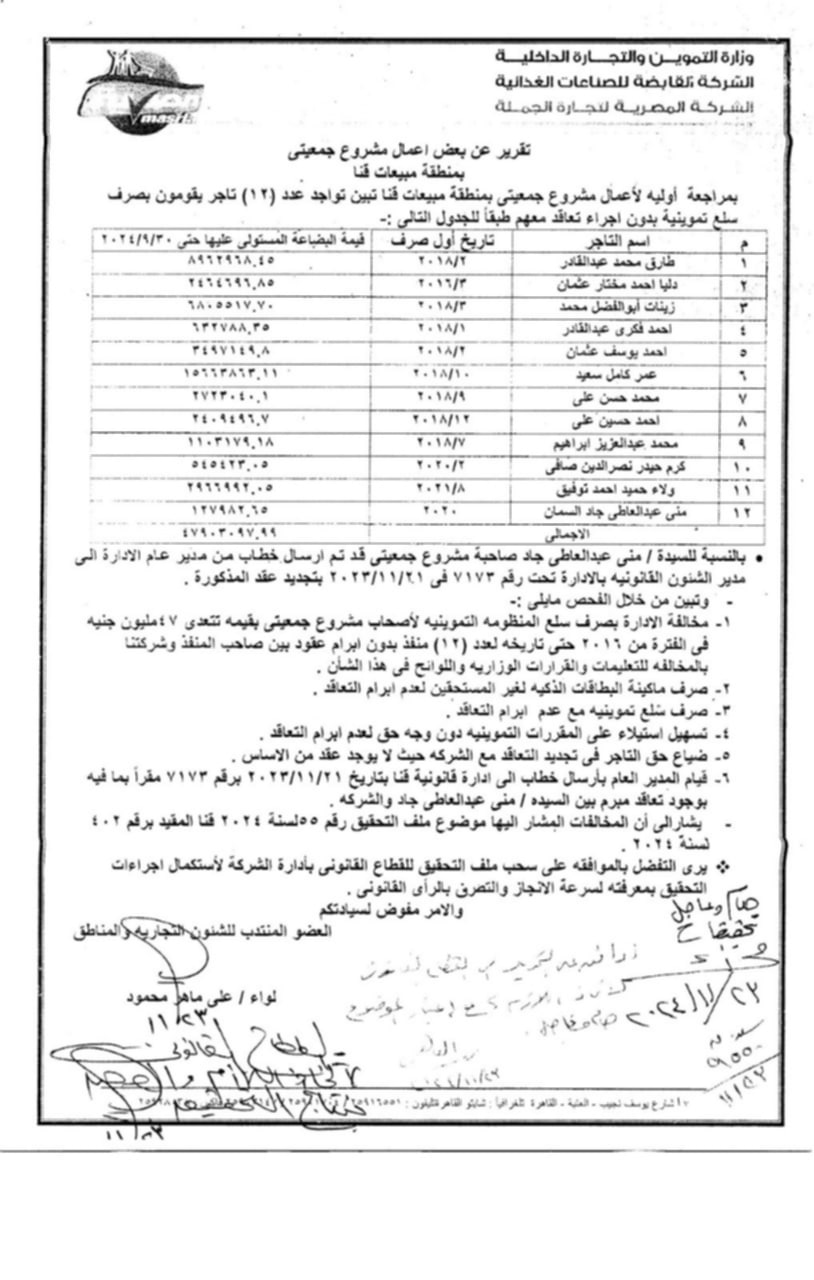 وزارة التمويـن والتجـارة الداخليـة
الشركة القابضة للصناعات الغذائية
الشركة المصرية لتجارة الجملة
masr
تقرير عن بعض اعمال مشروع جمعيتى
بمنطقة مبيعات قنا
بمراجعة أوليه لأعمال مشروع جمعيتى بمنطقة مبيعات قنا تبين تواجد عدد (١٢) تاجر يقومون بصرف
سلع تموينية بدون اجراء تعاقد معهم طبقاً للجدول التالى :-
م اسم التاجر تاريخ أول صرف قيمة البضاعة المستولى عليها حتى ٢٠٢٤/٩/٣٠
١ طارق محمد عبدالقادر ٢٠١٨/٢ ٨٩٦٢٩٦٨,٤٥
٢ دليا احمد مختار عثمان ٢٠١٦/٣ ٢٤٦٤٦٩٦,٨٥
٣ زينات أبوالفضل محمد ٢٠١٨/٣ ٦٨٠٥٥١٧,٧٠
٤ احمد فكرى عبدالقادر ٢٠١٨/١ ٦٣٢٧٨٨,٣٥
٥ احمد يوسف عثمان ٢٠١٨/٢ ٣٤٩٧١٤٩,٨
٦ عمر كامل سعيد ٢٠١٨/١٠ ١٥٦٦٣٨٦٣,١١
٧ محمد حسن على ٢٠١٨/٩ ٢٧٢٣٠٤٠,١
٨ احمد حسين على ٢٠١٨/١٢ ٢٤٠٩٤٩٦,٧
٩ محمد عبدالعزيز ابراهيم ٢٠١٨/٧ ١١٠٣١٧٩,١٨
١٠ كرم حيدر نصرالدين صافى ٢٠٢٠/٢ ٥٤٥٤٢٣,٠٥
١١ ولاء حميد احمد توفيق ٢٠٢١/٨ ٢٩٦٦٩٩٢,٠٥
١٢ منى عبدالعاطى جاد السمان ٢٠٢٠ ١٢٧٩٨٢,٦٥
الاجمالى ٤٧٩٠٣٠٩٧,٩٩
• بالنسبة للسيدة / منى عبدالعاطى جاد صاحبة مشروع جمعيتى قد تم ارسال خطاب من مدير عام الادارة الى
مدير الشئون القانونيه بالادارة تحت رقم ٧١٧٣ فى ٢٠٢٣/١١/٢١ بتجديد عقد المذكورة .
- وتبين من خلال الفحص مايلى :-
١- مخالفة الادارة بصرف سلع المنظومه التموينيه لأصحاب مشروع جمعيتى بقيمه تتعدى ٤٧مليون جنيه
فى الفترة من ٢٠١٦ حتى تاريخه لعدد (١٢) منفذ بدون ابرام عقود بين صاحب المنفذ وشركتنا
بالمخالفه للتعليمات والقرارات الوزاريه واللوائح فى هذا الشأن .
٢- صرف ماكينة البطاقات الذكيه لغير المستحقين لعدم ابرام التعاقد .
٣- صرف سلع تموينيه مع عدم ابرام التعاقد .
٤- تسهيل استيلاء على المقررات التموينيه دون وجه حق لعدم ابرام التعاقد .
٥- ضياع حق التاجر فى تجديد التعاقد مع الشركه حيث لا يوجد عقد من الاساس .
٦- قيام المدير العام بأرسال خطاب الى ادارة قانونية قنا بتاريخ ٢٠٢٣/١١/٢١ برقم ٧١٧٣ مقراً بما فيه
بوجود تعاقد مبرم بين السيده / منى عبدالعاطى جاد والشركه .
- يشارالى أن المخالفات المشار اليها موضوع ملف التحقيق رقم ٥٥لسنة ٢٠٢٤ قنا المقيد برقم ٤٠٢
لسنة ٢٠٢٤ .
❖ يرى التفضل بالموافقه على سحب ملف التحقيق للقطاع القانونى بأدارة الشركة لأستكمال اجراءات
التحقيق بمعرفته لسرعة الانجاز والتصرق بالرأى القانونى .
والامر مفوض لسيادتكم
العضو المنتدب للشئون التجاريه والمناطق
لواء / على ماهر محمود
١١/٢٣
هام وعاجل
تحقيقات
٢٠٢٤/١١/٢٣
١١/٢٣
١٢ شارع يوسف نجيب - العتبة - القاهرة تلغرافيا : شابتو القاهرة تليفون : ٢٥٩١٦٥٥١
١١/٢٣